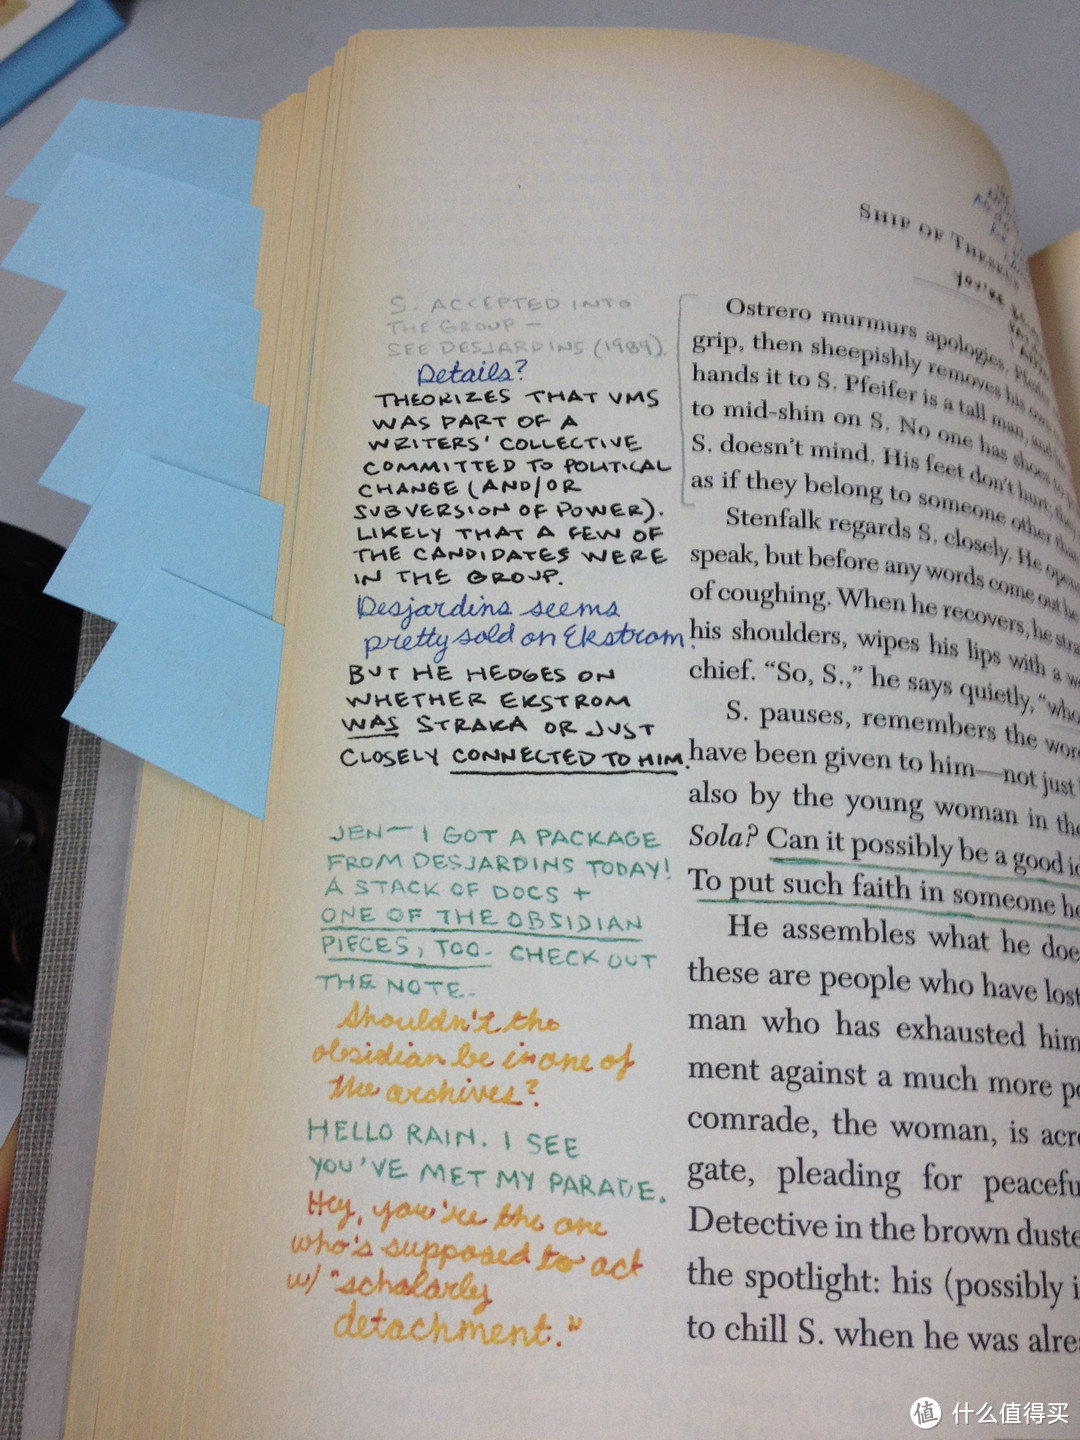 SHIP OF THESEUS
you're
S. ACCEPTED INTO
THE GROUP —
SEE DESJARDINS (1989).
Details?
THEORIZES THAT VMS
WAS PART OF A
WRITERS' COLLECTIVE
COMMITTED TO POLITICAL
CHANGE (AND/OR
SUBVERSION OF POWER).
LIKELY THAT A FEW OF
THE CANDIDATES WERE
IN THE GROUP.
Desjardins seems
pretty sold on Ekstrom.
BUT HE HEDGES ON
WHETHER EKSTROM
WAS STRAKA OR JUST
CLOSELY CONNECTED TO HIM.
JEN— I GOT A PACKAGE
FROM DESJARDINS TODAY!
A STACK OF DOCS +
ONE OF THE OBSIDIAN
PIECES, TOO. CHECK OUT
THE NOTE.
Shouldn't the
obsidian be in one of
the archives?
HELLO RAIN. I SEE
YOU'VE MET MY PARADE.
Hey, you're the one
who's supposed to act
w/ "scholarly
detachment."
Ostrero murmurs apologies. Pfeifer
grip, then sheepishly removes his own
hands it to S. Pfeifer is a tall man, and
to mid-shin on S. No one has shoes to
S. doesn't mind. His feet don't hurt; they
as if they belong to someone other than
Stenfalk regards S. closely. He opens
speak, but before any words come out he
of coughing. When he recovers, he
his shoulders, wipes his lips with a
chief. "So, S.," he says quietly, "who
S. pauses, remembers the
have been given to him—not just
also by the young woman in the
Sola? Can it possibly be a good
To put such faith in someone he
He assembles what he
these are people who have lost
man who has exhausted
ment against a much more
comrade, the woman, is
gate, pleading for
Detective in the brown
the spotlight: his (possibly
to chill S. when he was
值 什么值得买